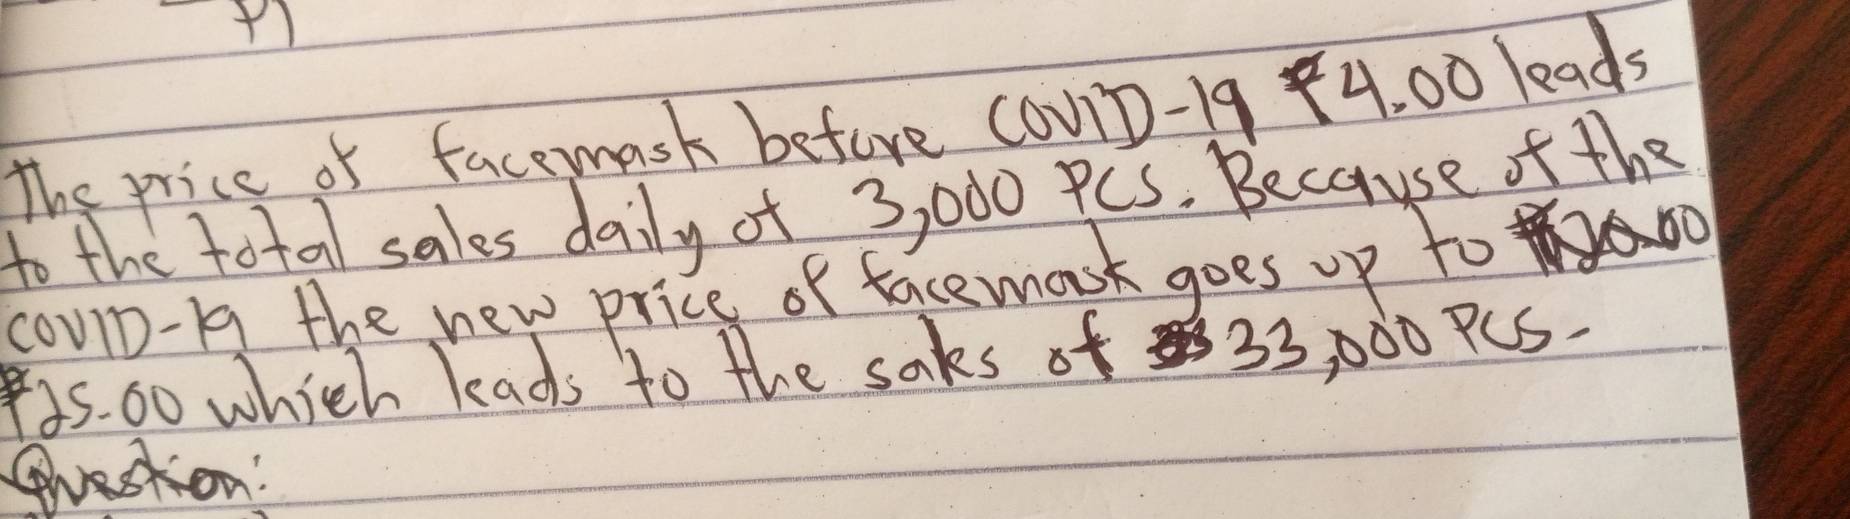 P1
The price of facemask before COVID-19 ₱4.00 leads
to the total sales daily of 3,000 PCS. Because of the
COVID-19 the new price of facemask goes up to
₱25.00 which leads to the sales of 33,000 PCS.
Question: